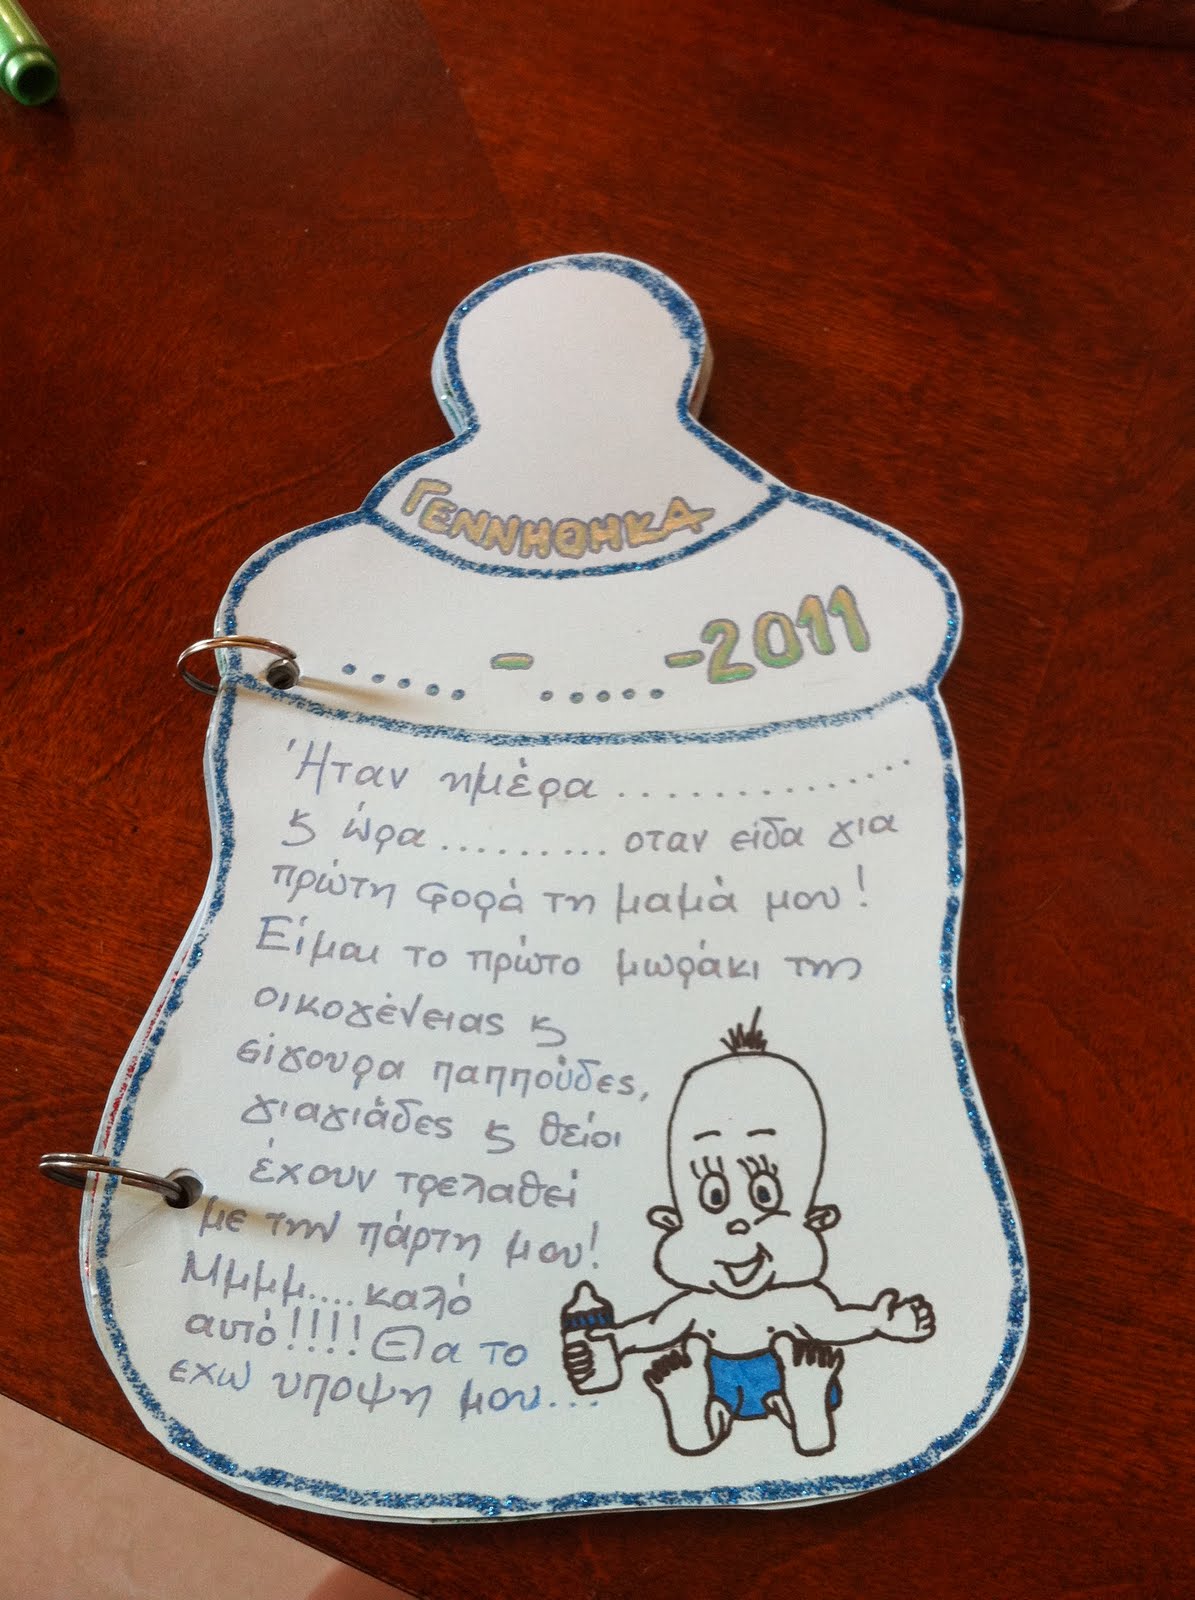 ΓΕΝΝΗΘΗΚΑ
..... - ..... -2011
Ήταν ημέρα .............
ϗ ώρα ......... οταν είδα για
πρώτη φορά τη μαμά μου!
Είμαι το πρώτο μωράκι της
οικογένειας ϗ
σίγουρα παππούδες,
γιαγιάδες ϗ θείοι
έχουν τρελαθεί
με την πάρτη μου!
Μμμμ....καλό
αυτό!!!! Θα το
εχω υποψη μου...